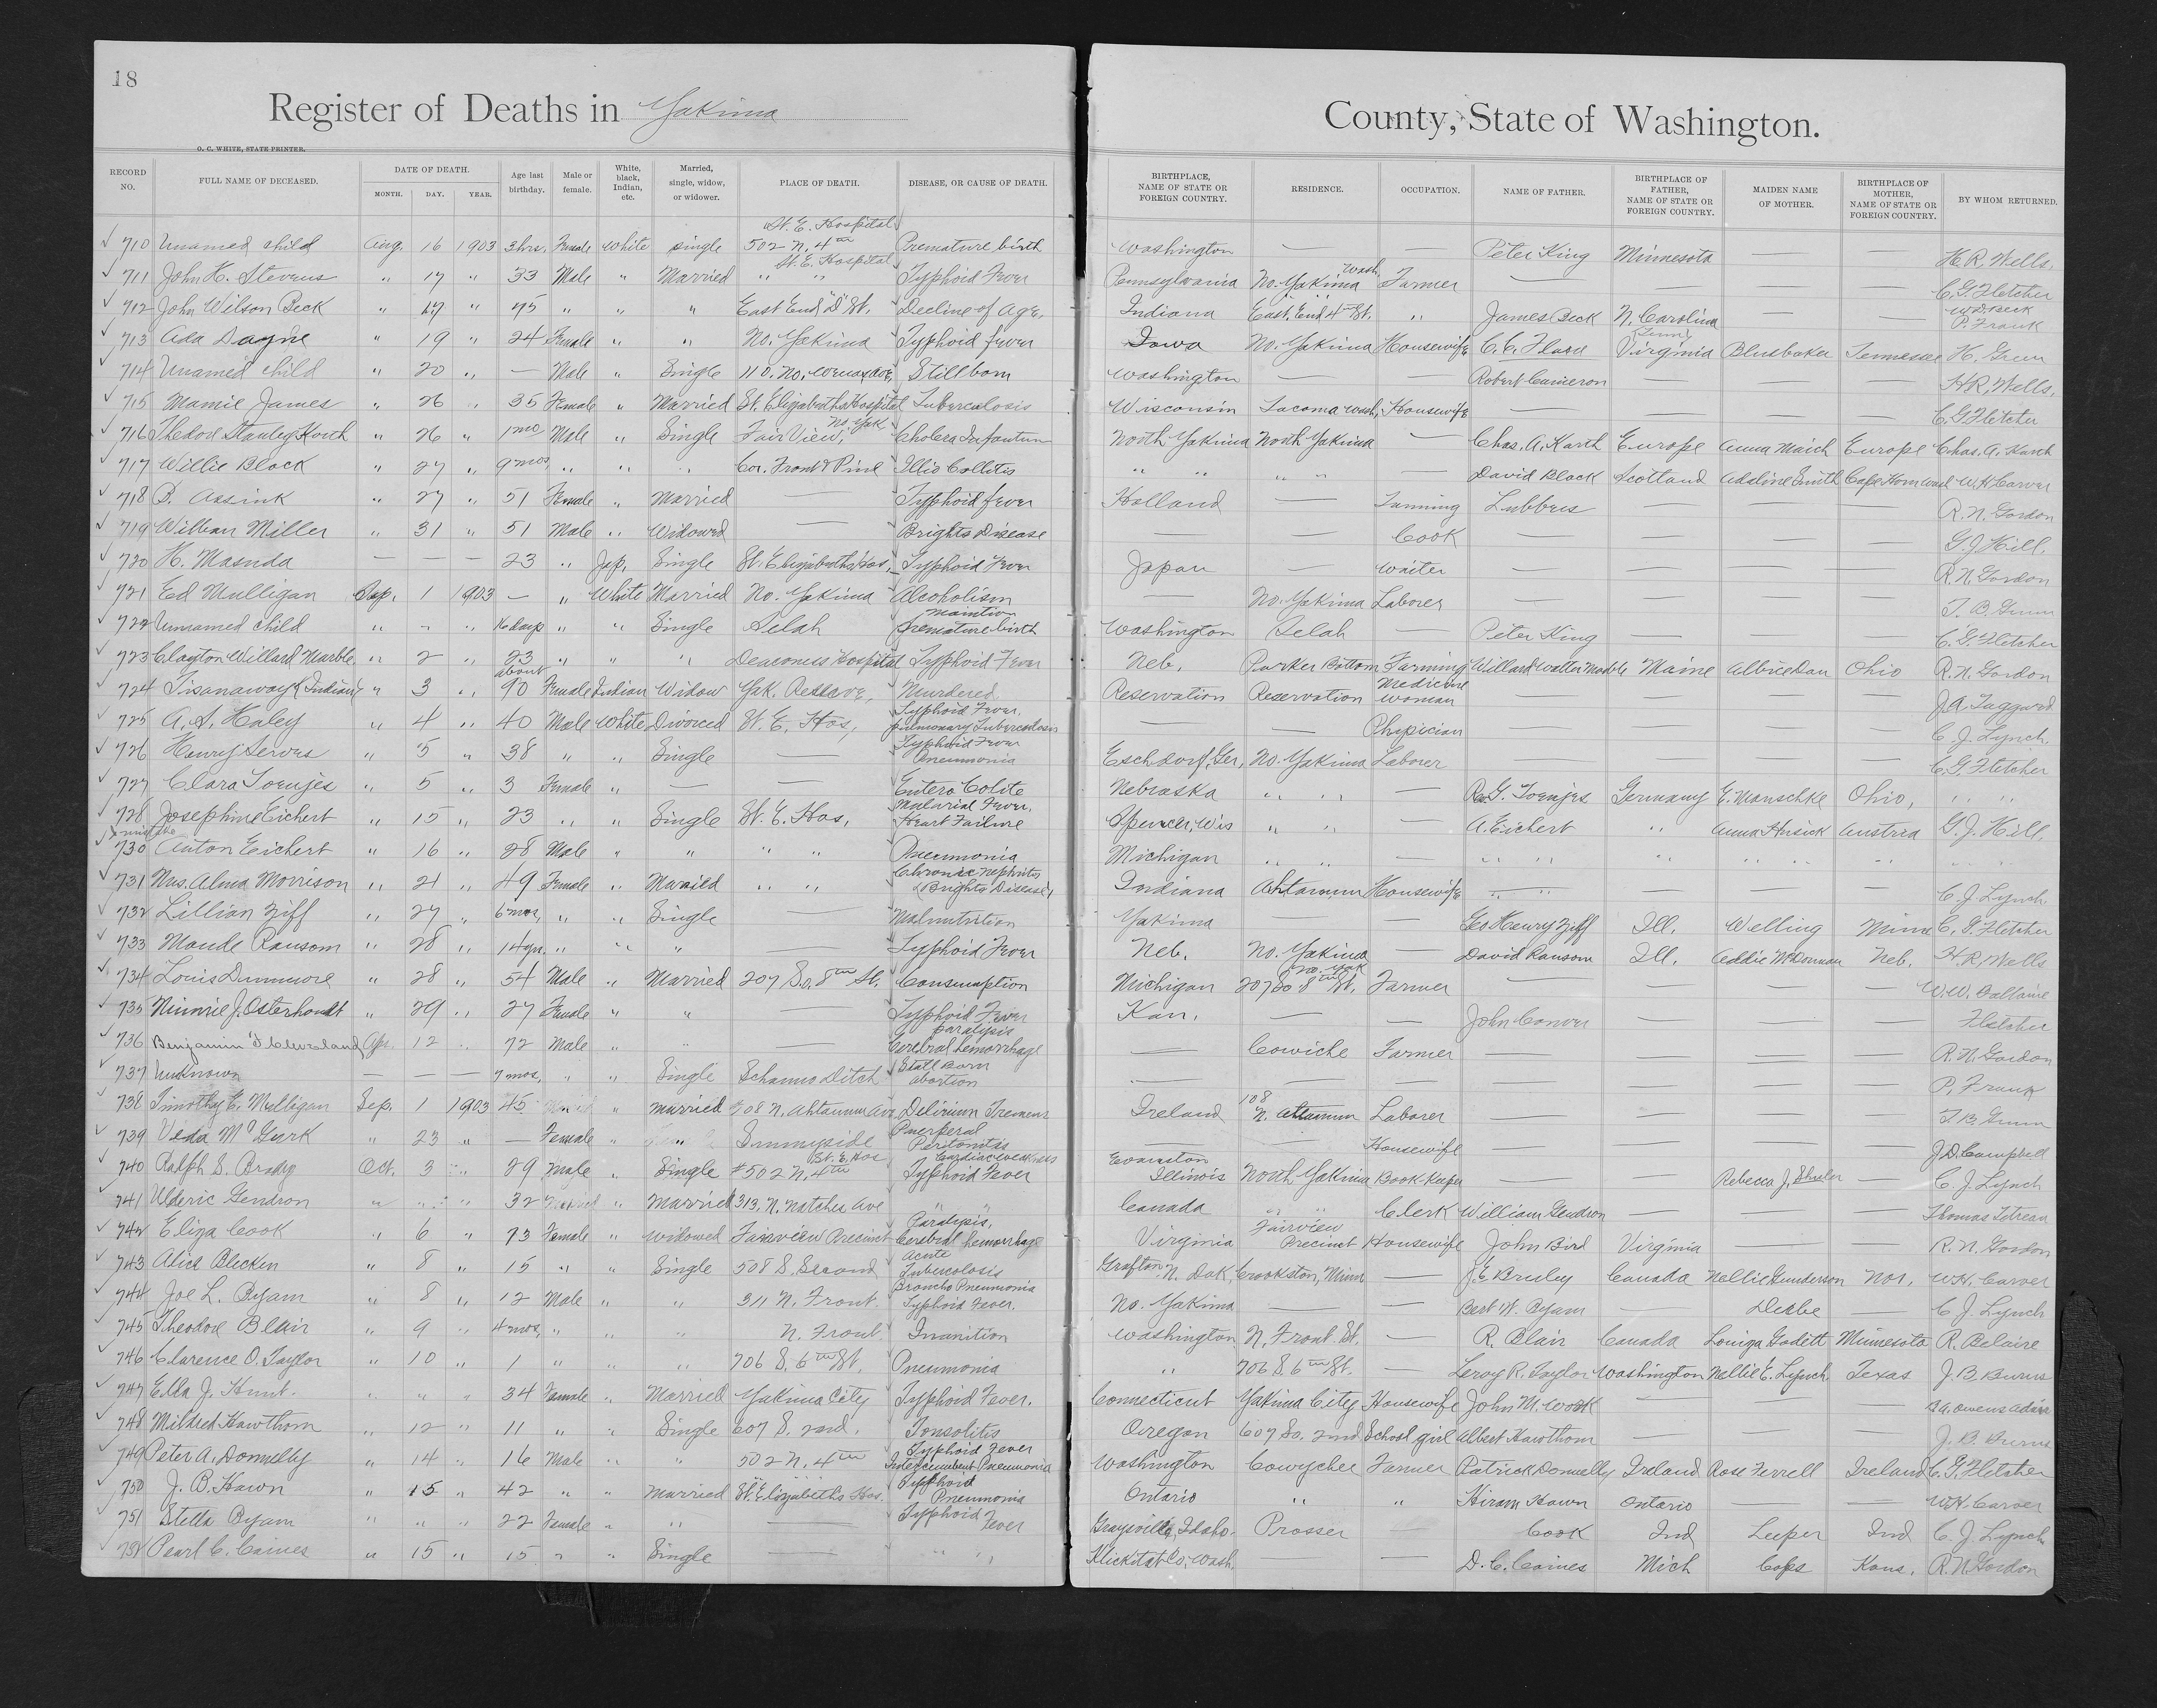 18
Register of Deaths in Yakima County, State of Washington.
O. C. WHITE, STATE PRINTER.
RECORD NO. FULL NAME OF DECEASED. DATE OF DEATH. MONTH. DAY. YEAR. Age last birthday. Male or female. White, black, Indian, etc. Married, single, widow, or widower. PLACE OF DEATH. DISEASE, OR CAUSE OF DEATH. BIRTHPLACE, NAME OF STATE OR FOREIGN COUNTRY. RESIDENCE. OCCUPATION. NAME OF FATHER. BIRTHPLACE OF FATHER, NAME OF STATE OR FOREIGN COUNTRY. MAIDEN NAME OF MOTHER. BIRTHPLACE OF MOTHER, NAME OF STATE OR FOREIGN COUNTRY. BY WHOM RETURNED.
710 Unamed child Aug. 16 1903 3 hrs. Female White single St. E. Hospital 502 N. 4th Premature birth Washington — — Peter King Minnesota — H. R. Wells.
711 John H. Stevens " 17 " 33 Male " Married St. E. Hospital " " Typhoid Fever Pennsylvania No. Yakima Wash. Farmer — — — — C. G. Fletcher
712 John Wilson Beck " 17 " 75 " " " East End "D" St. Decline of Age. Indiana East End 4th St. " James Beck N. Carolina W. D. Beck P. Frank
713 Ada Dayne " 19 " 24 Female " " No. Yakima Typhoid fever Iowa No. Yakima Housewife Virginia Tennessee H. Green
714 Unamed child " 20 " — Male " Single 110. No. Wenas Ave. Stillborn Washington — — Robert Cameron — — — H. R. Wells.
715 Mamie James " 26 " 35 Female " Married St. Elizabeths Hospital Tuberculosis Wisconsin Tacoma Wash. Housewife — — — — C. G. Fletcher
716 Thedore Stanley Korth " 26 " 1 mo Male " Single Fair View, No. Yak Cholera Infantum North Yakima North Yakima — Chas. A. Karth Europe Anna Maich Europe Chas. A. Karth
717 Willie Black " 27 " 9 mos " " " Cor. Front & Pine Illio Collitis " " " " — David Black Scotland Adaline Smith Cape Horn Wash W. H. Carver
718 B. Assink " 27 " 51 Female " Married — Typhoid fever Holland — Farming Lubbers — — — R. N. Gordon
719 William Miller " 31 " 51 Male " Widowed — Brights Disease — — Cook — — — — G. J. Hill.
720 H. Masuda — — — 23 " Jap. Single St. Elizabeths Hos. Typhoid Fever Japan — Waiter — — — — R. N. Gordon
721 Ed Mulligan Sep. 1 1903 — " White Married No. Yakima Alcoholism — No. Yakima Laborer — — — — T. B. Gunn
722 Unnamed child " " " 16 days " " Single Selah premature birth Washington Selah — Peter King — — — C. G. Fletcher
723 Clayton Willard Marble " 2 " 23 " " " Deaconess Hospital Typhoid Fever Neb. Parker Bottom Farming Willard Walter Marble Maine Ohio R. N. Gordon
724 Tisanaway (Indian) " 3 " about 90 Female Indian Widow Yak. Reserve, Murdered Reservation Reservation Medicine woman — — — — J. A. Taggard
725 A. S. Haley " 4 " 40 Male White Divorced St. E. Hos, Typhoid Fever, pulmonary Tuberculosis — — Physician — — — — C. J. Lynch
726 Henry Serves " 5 " 38 " " Single — Typhoid Fever Pneumonia Eschdorf, Ger, No. Yakima Laborer — — — — C. G. Fletcher
727 Clara Toenjes " 5 " 3 Female " — — Entero Colite Nebraska " " — Rev. G. Toenjes Germany E. Manschke Ohio, " "
728 Josephine Eichert " 15 " 23 " " Single St. E. Hos, Malarial Fever, Heart Failure Spencer, Wis " " — A. Eichert " Anna Husick Austria G. J. Hill.
730 Anton Eichert " 16 " 28 Male " " " " Pneumonia Michigan " " — " " " " " " " "
731 Mrs. Alma Morrison " 21 " 49 Female " Married " " Chronic Nephritis (Brights Disease) Indiana Ahtanum Housewife — — — — C. J. Lynch
732 Lillian Ziff " 27 " 6 mos, " " Single — Malnutrition Yakima — Geo Henry Ziff Ill. Welling Minn C. G. Fletcher
733 Maude Ransom " 28 " 14 yrs. " " " — Typhoid Fever Neb. No. Yakima David Ransom Ill. Addie McDonnan Neb. H. R. Wells
734 Louis Dunmore " 28 " 54 Male " Married 207 So. 8th St. Consumption Michigan 207 So. 8th St. No. Yak Farmer — — — — W. W. Dallaine
735 Minnie J. Osterhoudt " 29 " 27 Female " " — Typhoid Fever Kan. — — John Conver — — — Fletcher
736 Benjamin F Cleveland Apr. 12 " 72 Male " " — paralysis Cerebral hemorrhage — Cowiche Farmer — — — R. N. Gordon
737 Unknown — — — 7 mos, " " Single Schanno Ditch Still Born abortion — — — — — — — P. Frank
738 Timothy E. Mulligan Sep. 1 1903 45 " married 708 N. Ahtanum Ave Delirium Tremens Ireland 108 N. Attanum Laborer — — — — T. B. Gunn
739 Veda McGurk " 23 " — Female " " Sunnyside Puerperal Peritonitis — — Housewife — — — — J. D. Campbell
740 Ralph S. Brady Oct. 3 " 29 male " Single St. E. Hos #502 N. 4th Cardiac weakness Typhoid Fever Evanston Illinois North Yakima Book-Keeper — — Rebecca J. Shuler — C. J. Lynch
741 Ulderic Gendron " " " 32 " Married 313. N. Natches Ave " " Canada " " Clerk William Gendron — — — Thomas Tetreau
742 Eliza Cook " 6 " 73 Female " widowed Fairview Precinct Paralysis, Cerebral hemorrhage Virginia Fairview Precinct Housewife John Bird Virginia — — R. N. Gordon
743 Alice Blecken " 8 " 15 " " Single 508 S. Second Acute Tubercolosis Grafton N. Dak. Crookston, Minn — J. E. Brisley Canada Nellie Gunderson Nor. W. H. Carver
744 Joe L. Byam " 8 " 12 Male " " 311 N. Front. Broncho Pneumonia Typhoid Fever. No. Yakima — — Bert W. Byam — Deabe — C. J. Lynch
745 Theodore Blair " 9 " 4 mos, " " " N. Front. Inanition Washington N. Front St. — R. Blair Canada Louiza Godett Minnesota R. Belaire
746 Clarence O. Taylor " 10 " 1 " " " 706 S. 6th St. Pneumonia " 706 S. 6th St. — Leroy R. Taylor Washington Nellie E. Lynch Texas J. B. Burns
747 Ella J. Hunt. " " " 34 Female " Married Yakima City Typhoid Fever. Connecticut Yakima City Housewife John M. Wook — — — Owens Adair
748 Mildred Hawthorn " 12 " 11 " " Single 607 S. 2nd. Tonsolitis Oregon 607 So. 2nd School girl Albert Hawthorn — — — J. B. Burns
749 Peter A. Donnelly " 14 " 16 Male " " 502 N. 4th Typhoid Fever Intercurrent Pneumonia Washington Cowychee Farmer Patrick Donnelly Ireland Rose Ferrell Ireland C. G. Fletcher
750 J. B. Hawn " 15 " 42 " " Married St. Elizabeths Hos. Typhoid Pneumonia Ontario " " Hiram Hawn Ontario — — W. H. Carver
751 Stella Byam " " " 22 Female " " — Typhoid Fever Graysville, Idaho. Prosser — Cook Ind Leeper Ind C. J. Lynch
752 Pearl C. Caines " 15 " 15 " " Single — " " Klickitat Co, Wash. — — D. C. Caines Mich Cops Kans. R. N. Gordon